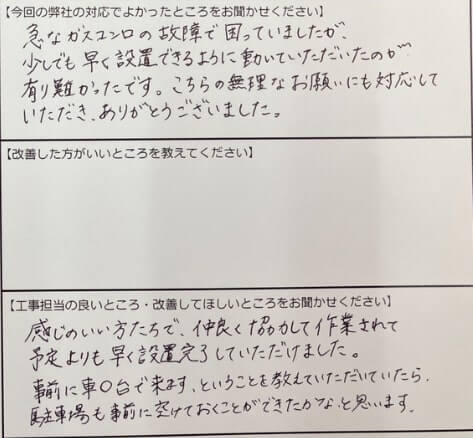 【今回の弊社の対応でよかったところをお聞かせください】
急なガスコンロの故障で困っていましたが、
少しでも早く設置できるように動いていただいたのが
有り難かったです。こちらの無理なお願いにも対応して
いただき、ありがとうございました。
【改善した方がいいところを教えてください】
【工事担当の良いところ・改善してほしいところをお聞かせください】
感じのいい方たちで、仲良く協力して作業されて
予定よりも早く設置完了していただけました。
事前に車〇台で来ます、ということを教えていただいていたら、
駐車場も事前に空けておくことができたかな、と思います。